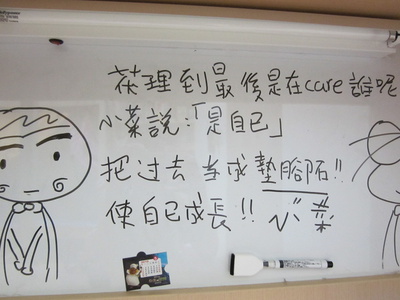 茶理到最後是在care誰呢
小菜説:「是自己」
把过去當成墊腳石!!
使自己成長!! 小菜